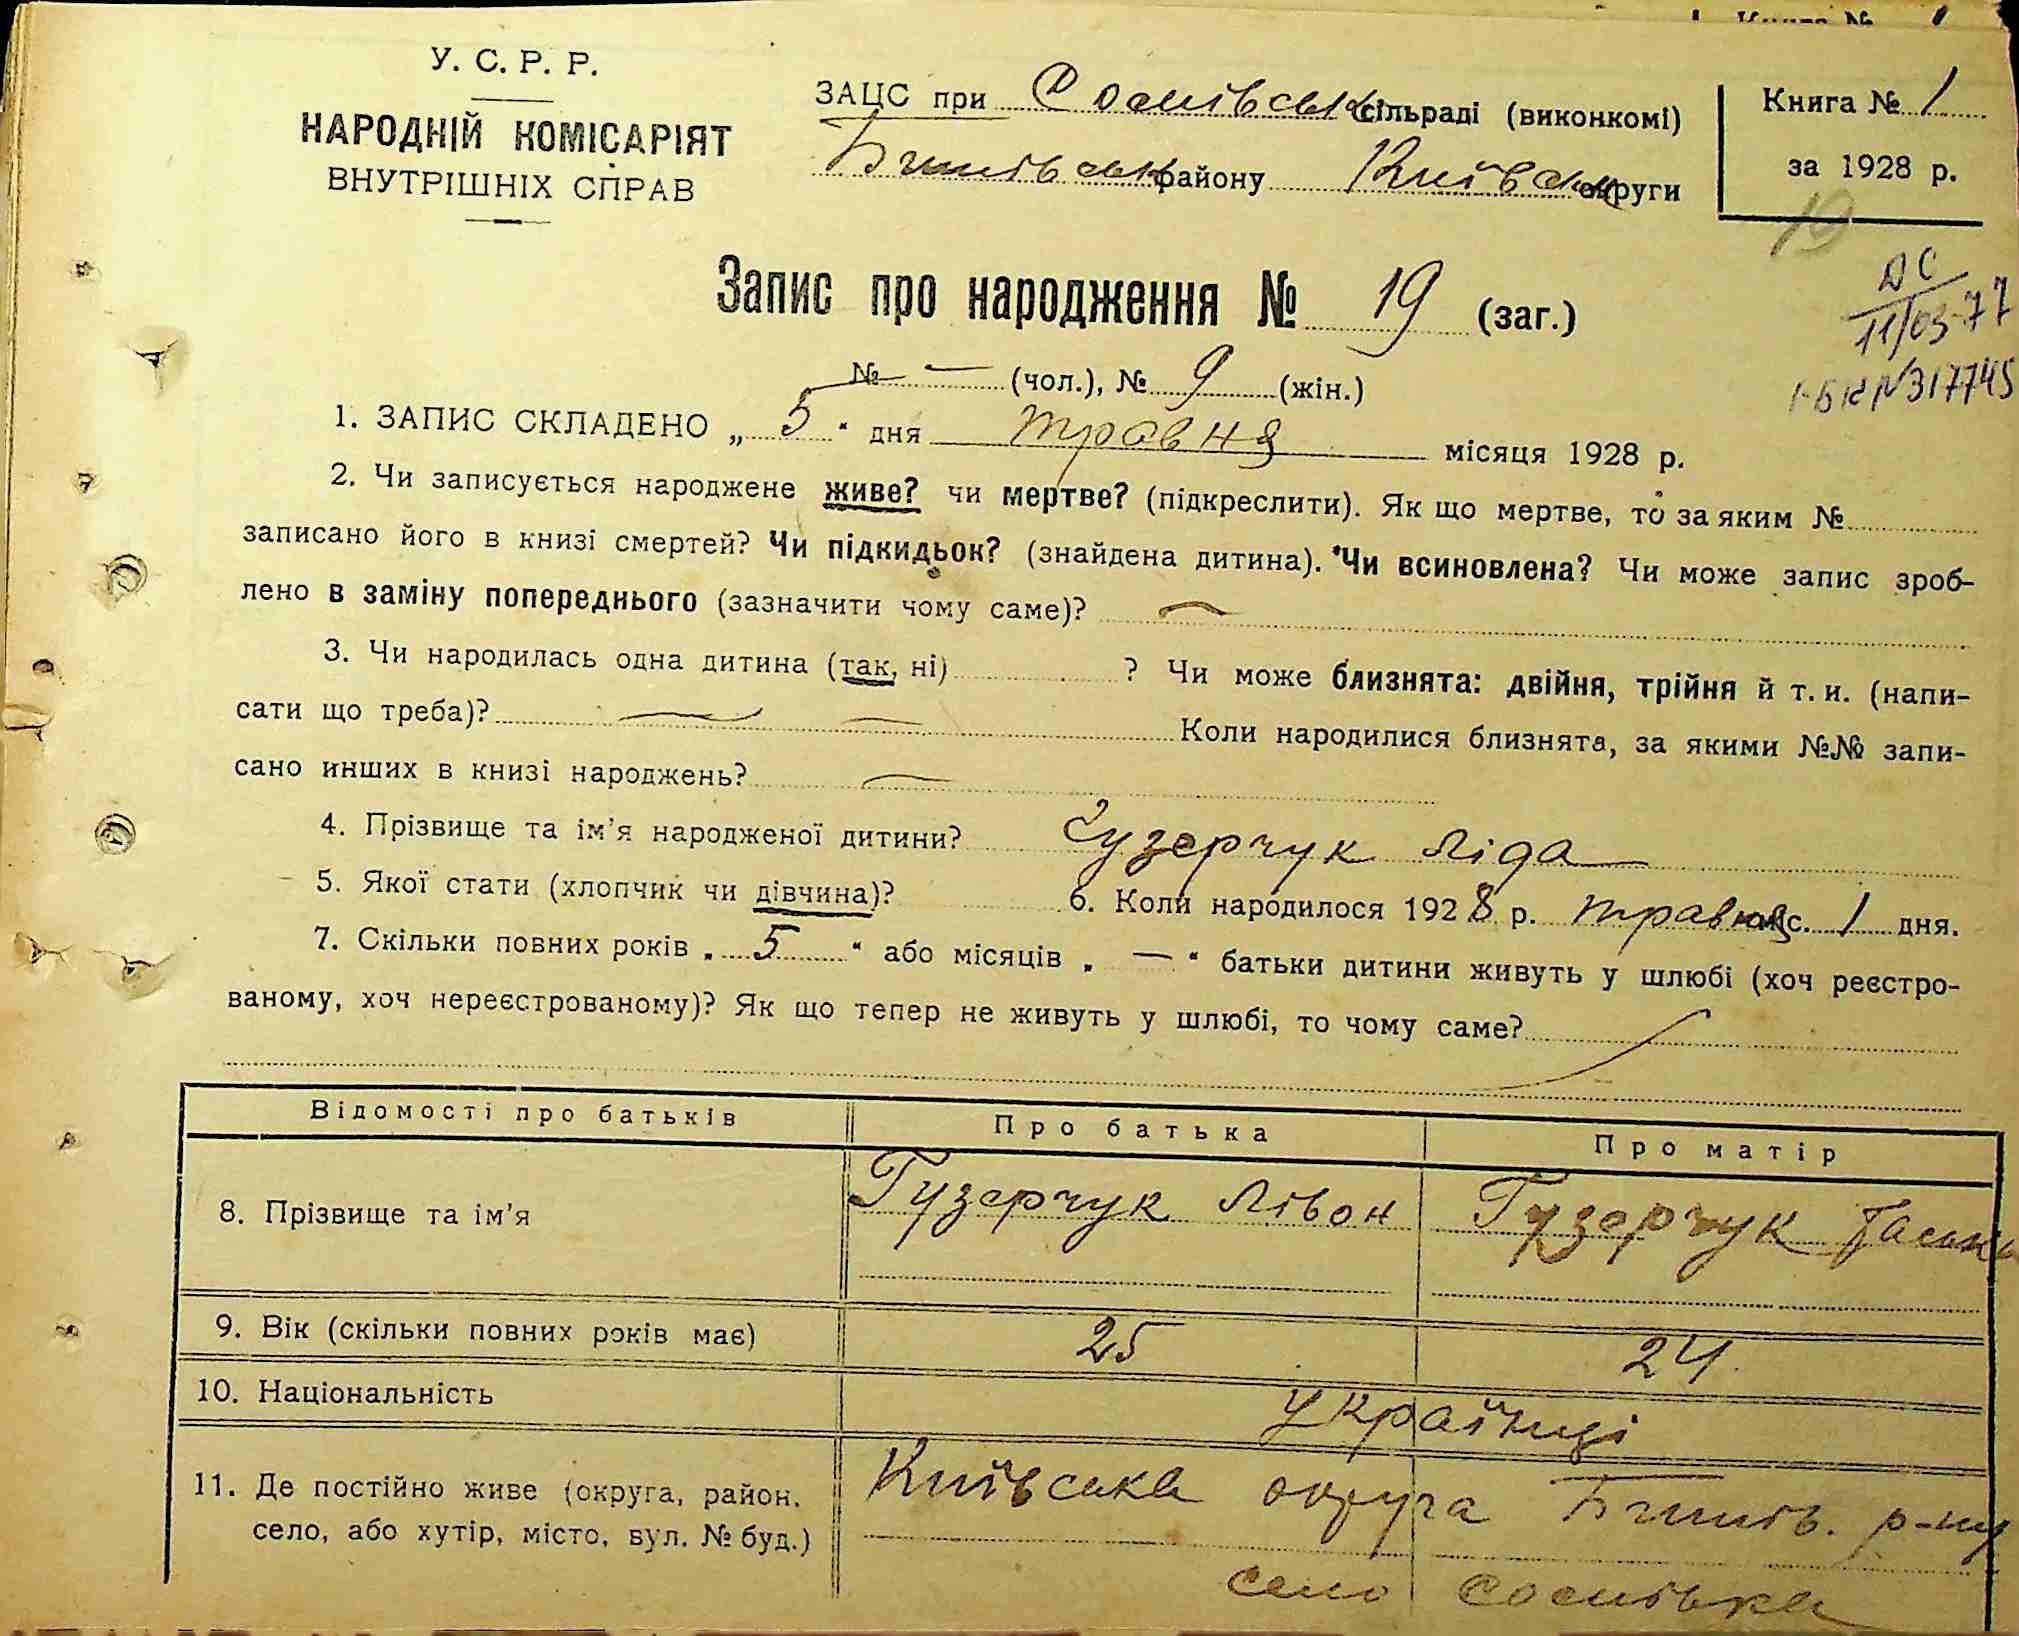 У. С. Р. Р.
НАРОДНІЙ КОМІСАРІЯТ
ВНУТРІШНІХ СПРАВ
ЗАЦС при Соснівськ сільраді (виконкомі)
району Київськ округи
Книга № 1
за 1928 р.
19
ДС
11/03-77
№317745
Запис про народження № 19 (заг.)
№ — (чол.), № 9 (жін.)
1. ЗАПИС СКЛАДЕНО „ 5 “ дня травня місяця 1928 р.
2. Чи записується народжене живе? чи мертве? (підкреслити). Як що мертве, то за яким №
записано його в книзі смертей? Чи підкидьок? (знайдена дитина). Чи всиновлена? Чи може запис зроб-
лено в заміну попереднього (зазначити чому саме)? —
3. Чи народилась одна дитина (так, ні) ? Чи може близнята: двійня, трійня й т. и. (напи-
сати що треба)? — — Коли народилися близнята, за якими №№ запи-
сано инших в книзі народжень? —
4. Прізвище та ім’я народженої дитини? Гузерчук Ліда
5. Якої стати (хлопчик чи дівчина)? 6. Коли народилося 1928 р. травня міс. 1 дня.
7. Скільки повних років „ 5 “ або місяців „ — “ батьки дитини живуть у шлюбі (хоч реєстро-
ваному, хоч нереєстрованому)? Як що тепер не живуть у шлюбі, то чому саме?
Відомості про батьків Про батька Про матір
8. Прізвище та ім’я Гузерчук Лівон Гузерчук
9. Вік (скільки повних років має) 25 24
10. Національність українці
11. Де постійно живе (округа, район, Київська округа р-ну
село, або хутір, місто, вул. № буд.) село Соснівка